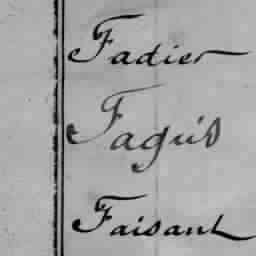 Fadier
Faguis
Faisant